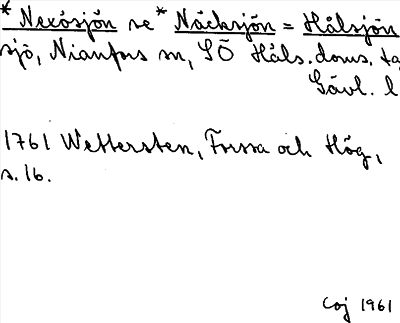 * Nexösjön se * Näcksjön = Hålsjön
sjö, Nianfors sn, SÖ Häls. doms. 
Gävl. l
1761 Wettersten, Forssa och Hög,
s. 16.
Coj 1961